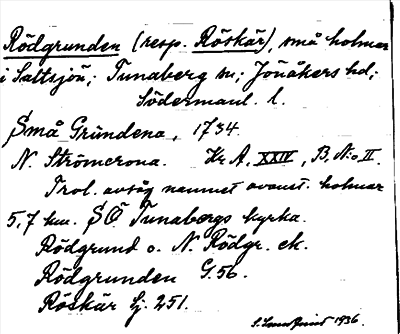 Rödgrunden (resp. Röskär), små holmar
i Saltsjön; Tunaberg sn; Jönåkers hd;
Södermanl. l.
Små Grundena, 1734.
N. Strömerona. Kr A. XXIV, B. No II.
Trol. avsåg namnet ovanst. holmar
5,7 km. SÖ Tunabergs kyrka.
Rödgrund o. N. Rödgr. ek.
Rödgrunden G. 56.
Röskär Sj. 251.
1936.